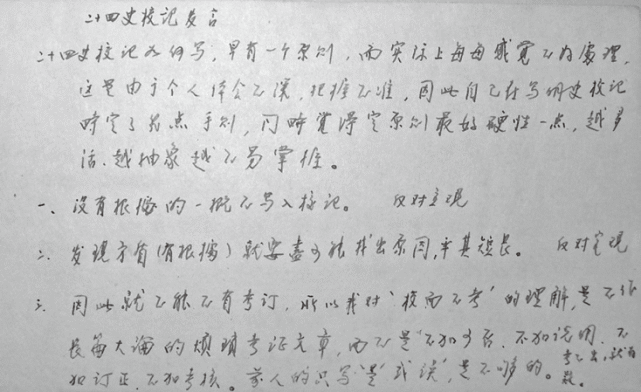 二十四史校记发言
二十四史校记如何写,早有一个原则,而实际上每每感觉不易处理,
这是由于个人体会不深,把握不准,因此自己在写明史校记
时定了若点手则,同时觉得定原则最好硬性一点,越多
活,越抽象越不易掌握。
一、没有根据的一概不写入校记。 反对主观
二、发现矛盾(有根据)就要尽可能找出原因,平其短长。 反对客观
三、因此就不能不有考订,所以我对“校而不考”的理解,是不作
长篇大论的烦琐考证文章,而不是不加 不加说明,不
加订正,不加考核。前人的只写“是”或“误”是不够的。考不出,就存疑。